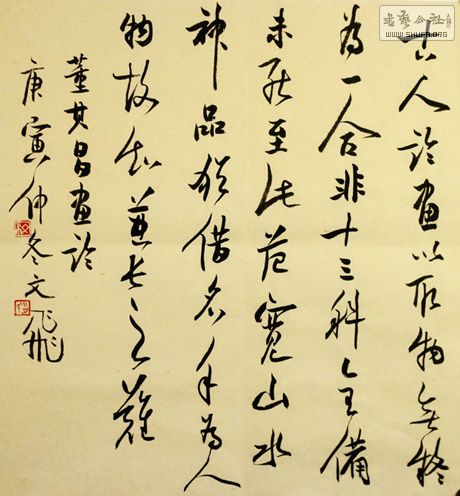 古人論畫以取物無疑
為一合非十三科全備
未能至此范寬山水
神品猶借名手為人
物故知兼長之難
董其昌畫論
庚寅仲冬文飛
書藝公社
WWW.SHUFA.ORG